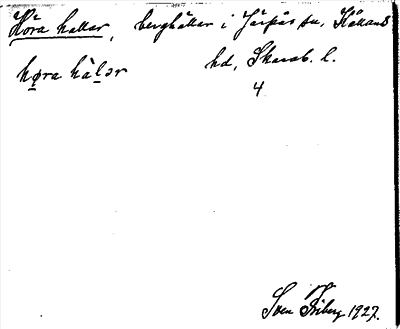 Höra hallar, berghällar i Järpås sn, Kållands
hd, Skarab. l.
høra hàlər
4
Sven Friberg 1927.